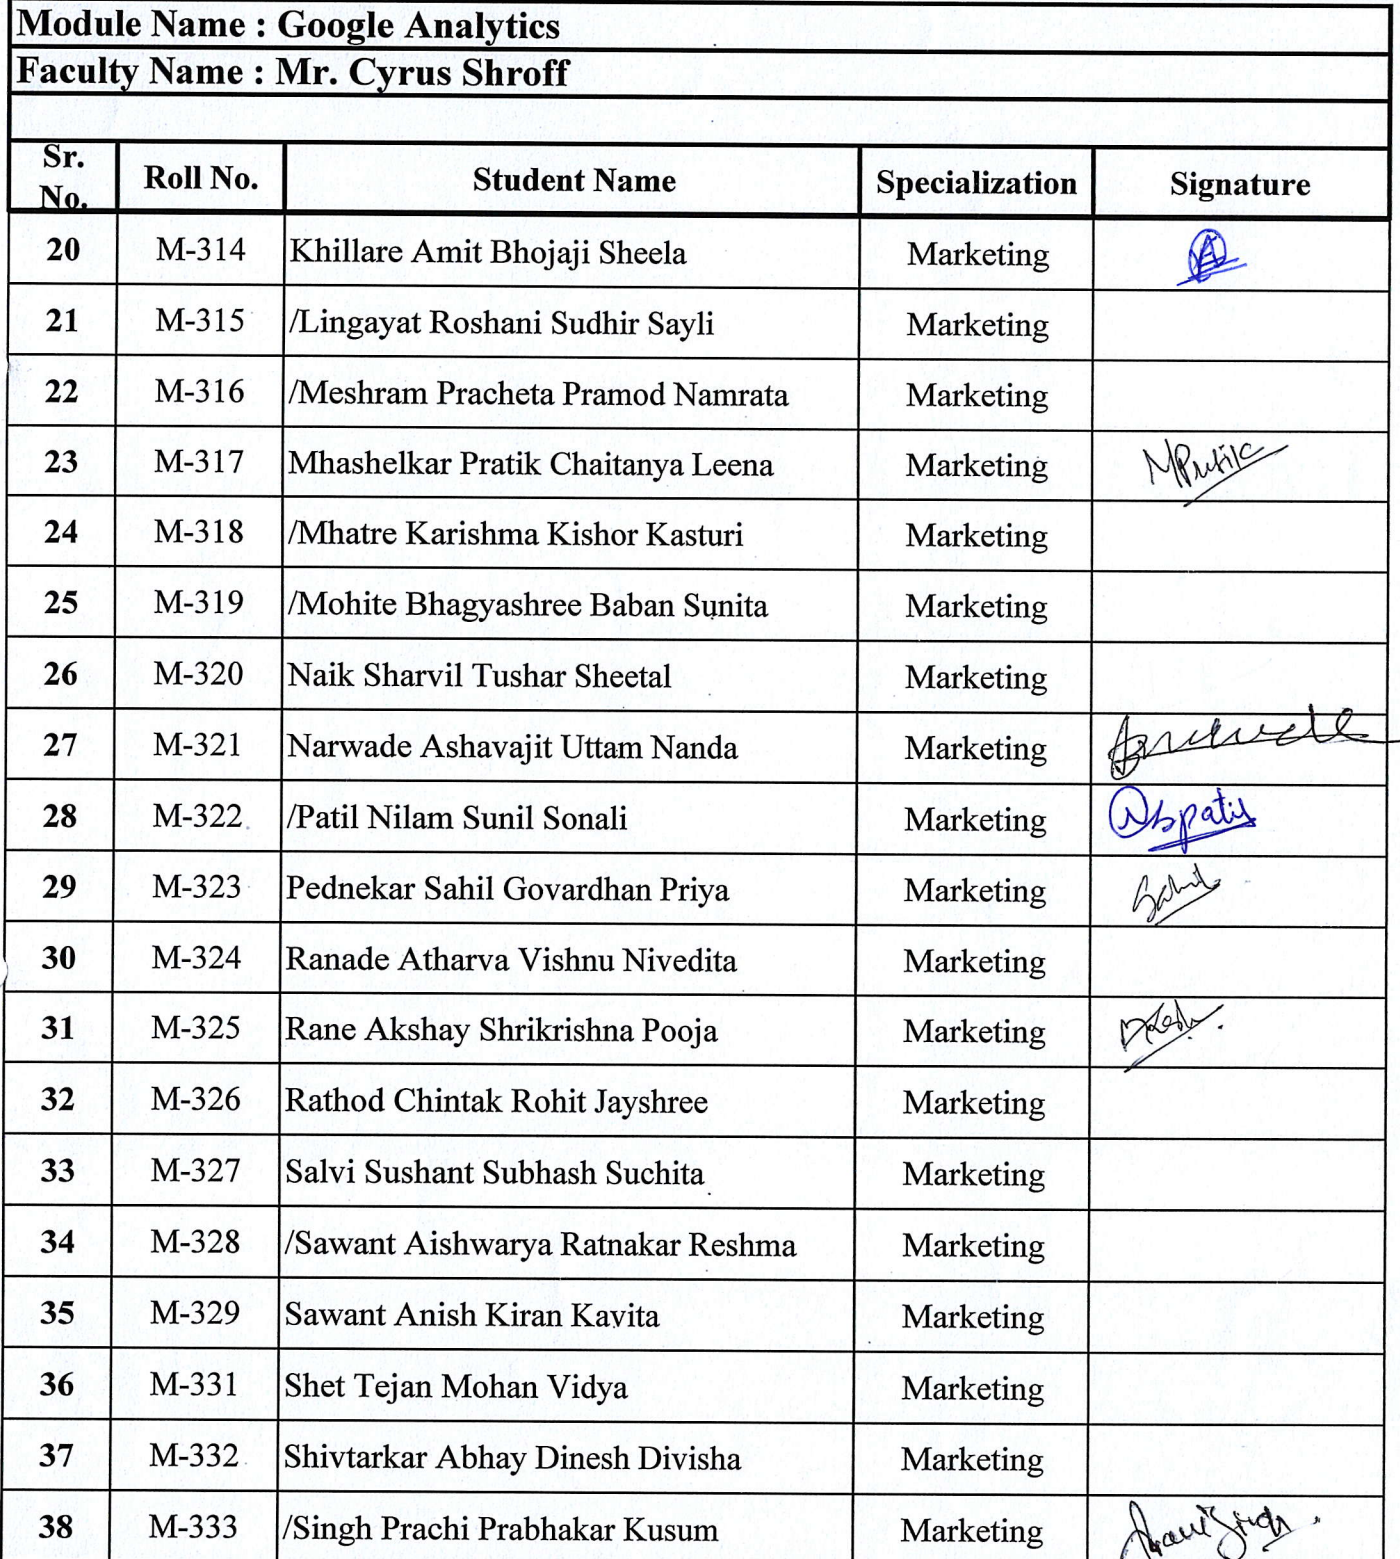 Module Name : Google Analytics
Faculty Name : Mr. Cyrus Shroff
Sr. No. Roll No. Student Name Specialization Signature
20 M-314 Khillare Amit Bhojaji Sheela Marketing
21 M-315 /Lingayat Roshani Sudhir Sayli Marketing
22 M-316 /Meshram Pracheta Pramod Namrata Marketing
23 M-317 Mhashelkar Pratik Chaitanya Leena Marketing
24 M-318 /Mhatre Karishma Kishor Kasturi Marketing
25 M-319 /Mohite Bhagyashree Baban Sunita Marketing
26 M-320 Naik Sharvil Tushar Sheetal Marketing
27 M-321 Narwade Ashavajit Uttam Nanda Marketing
28 M-322 /Patil Nilam Sunil Sonali Marketing
29 M-323 Pednekar Sahil Govardhan Priya Marketing Sahil
30 M-324 Ranade Atharva Vishnu Nivedita Marketing
31 M-325 Rane Akshay Shrikrishna Pooja Marketing
32 M-326 Rathod Chintak Rohit Jayshree Marketing
33 M-327 Salvi Sushant Subhash Suchita Marketing
34 M-328 /Sawant Aishwarya Ratnakar Reshma Marketing
35 M-329 Sawant Anish Kiran Kavita Marketing
36 M-331 Shet Tejan Mohan Vidya Marketing
37 M-332 Shivtarkar Abhay Dinesh Divisha Marketing
38 M-333 /Singh Prachi Prabhakar Kusum Marketing